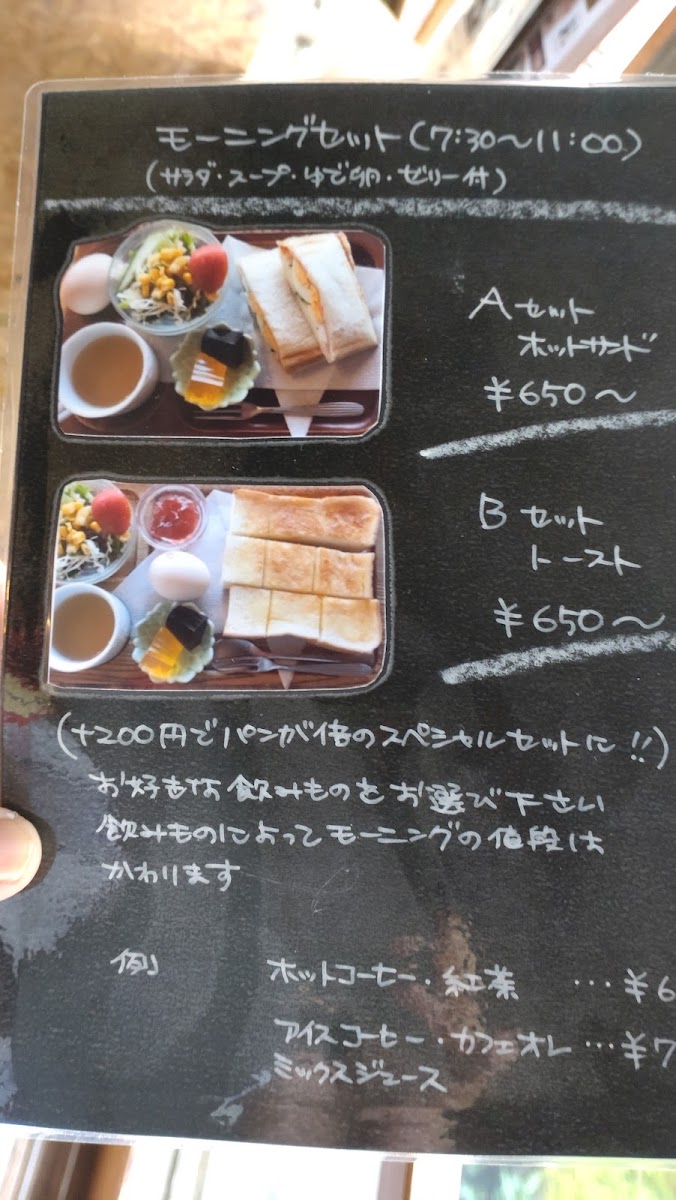 モーニングセット(7:30～11:00)
(サラダ・スープ・ゆで卵・ゼリー付)
Aセット
ホットサンド
¥650～
Bセット
トースト
¥650～
(+200円でパンが倍のスペシャルセットに!!)
お好きな飲みものをお選び下さい
飲みものによってモーニングの値段は
かわります
例 ホットコーヒー・紅茶 …¥6
アイスコーヒー・カフェオレ …¥7
ミックスジュース